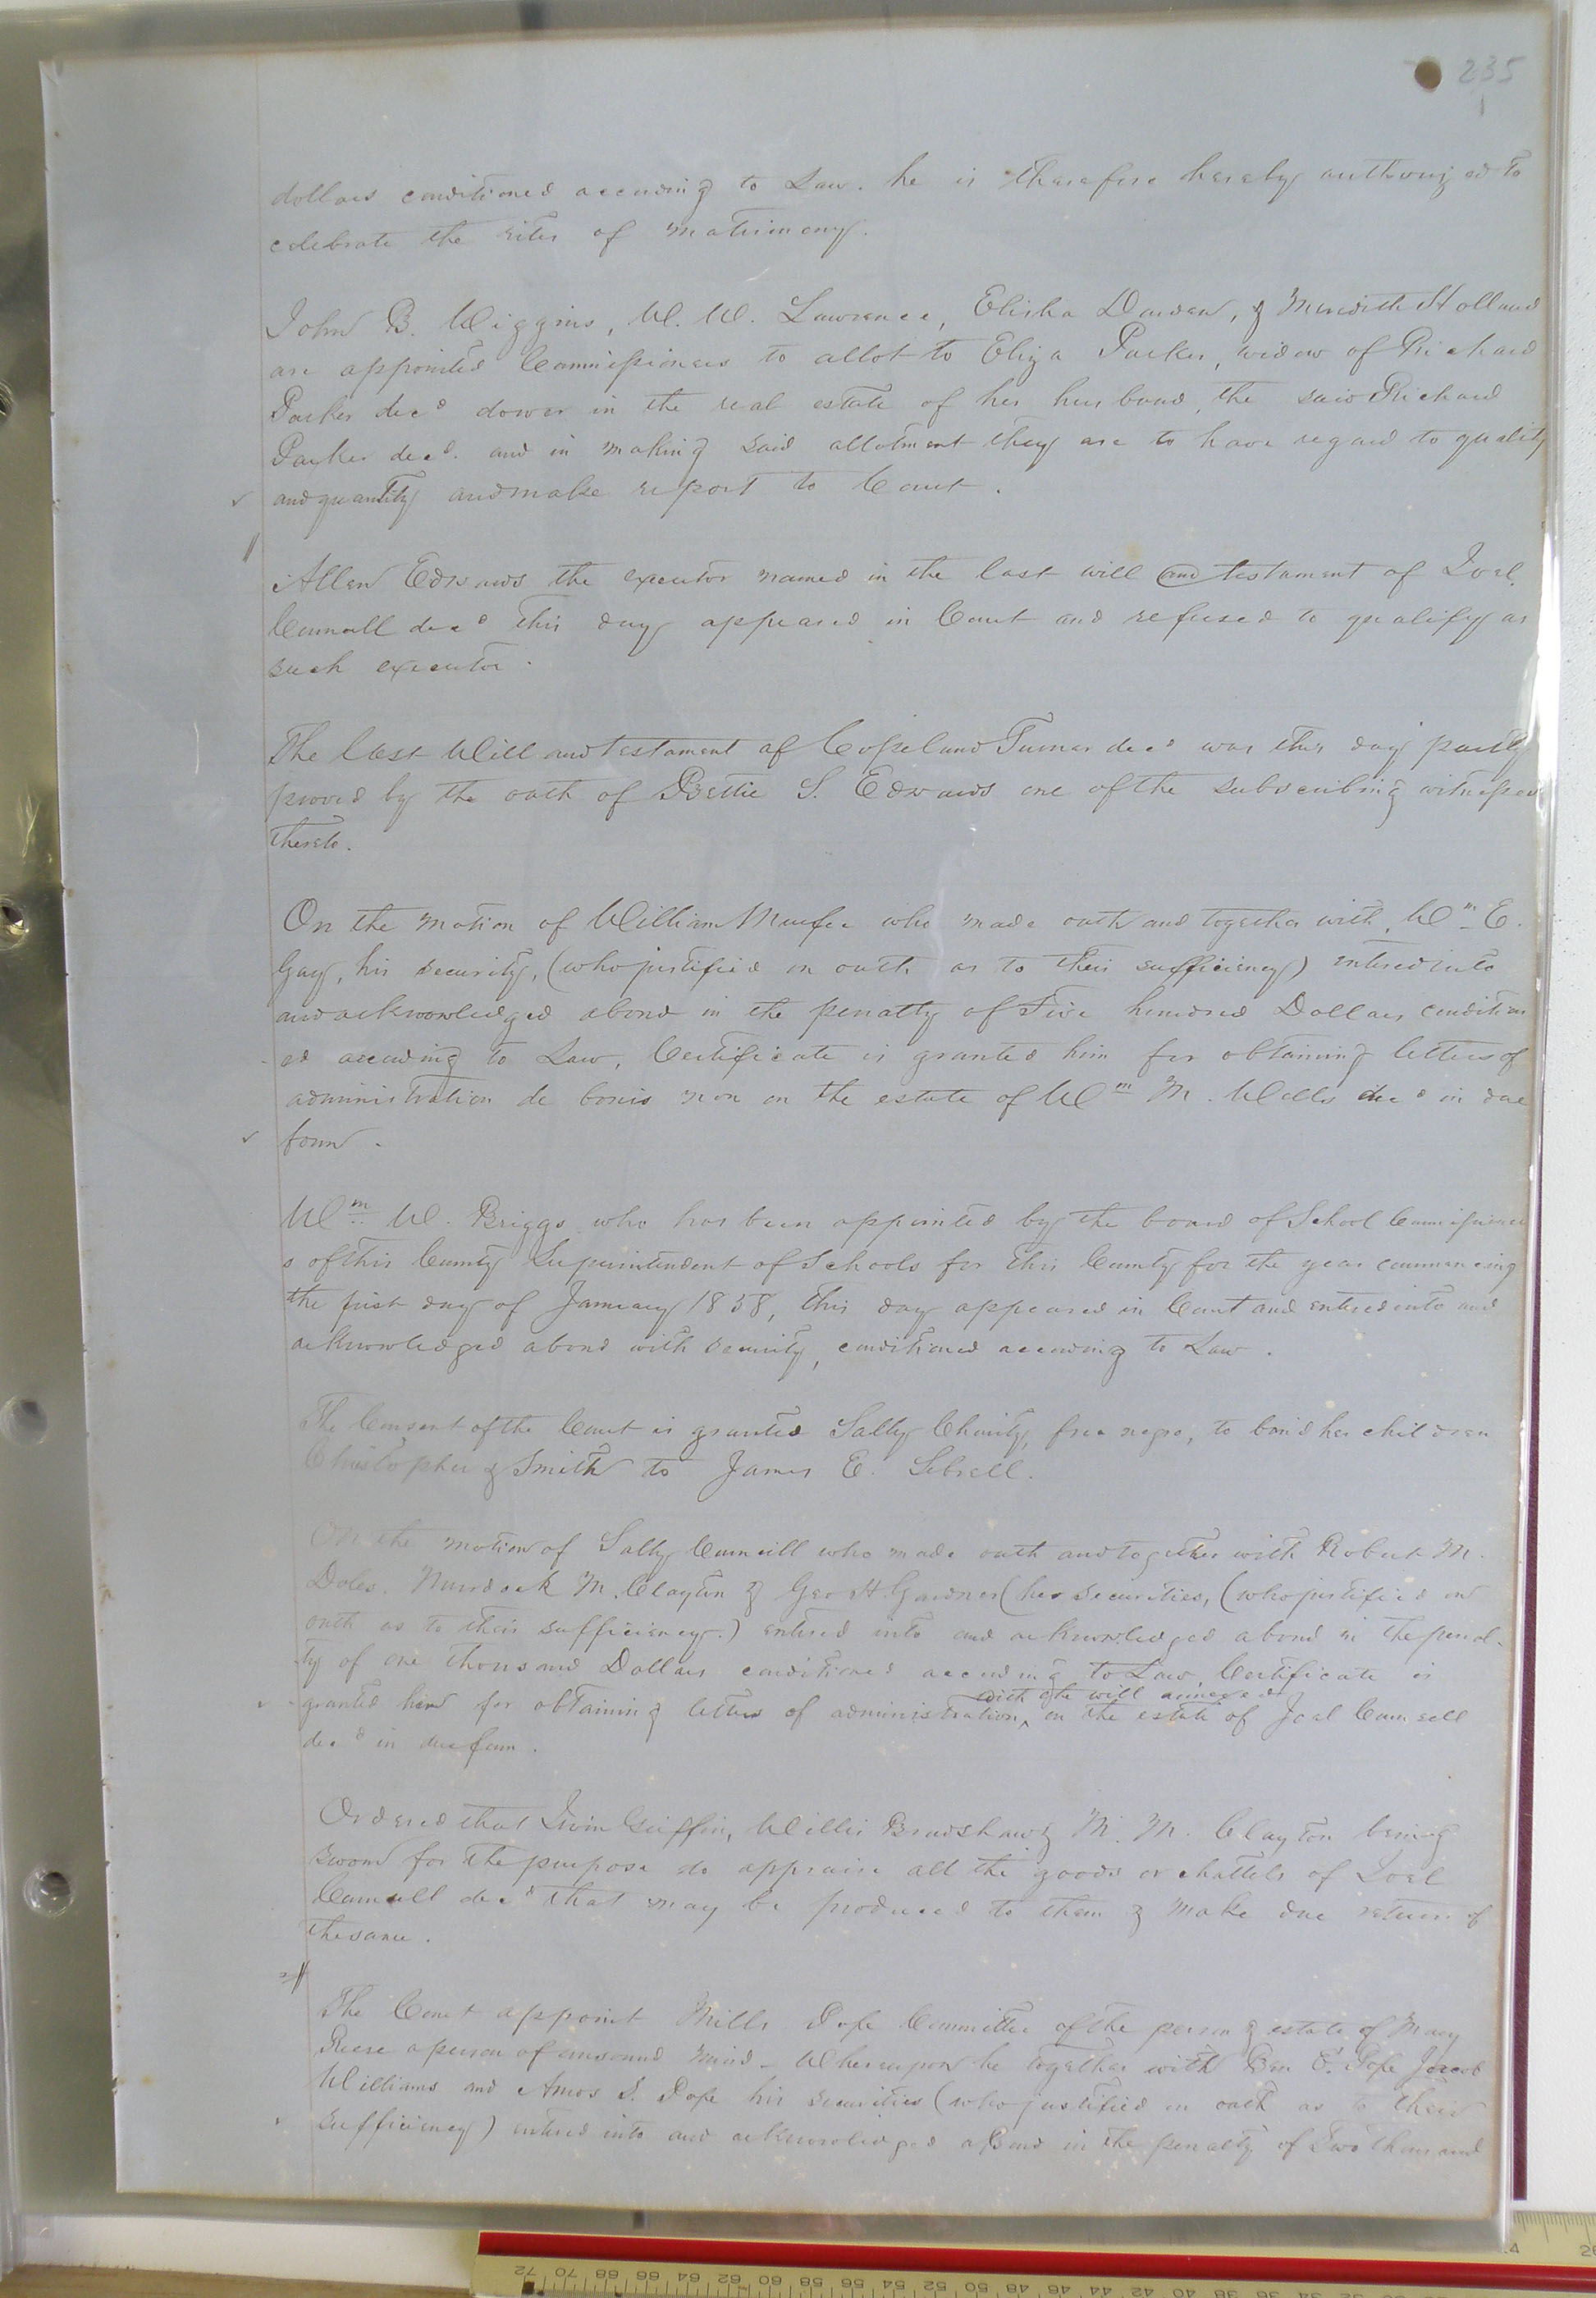 235
dollars conditioned according to Law. he is therefore hereby authorized to
celebrate the rites of matrimony.
John B. Wiggins, W. W. Lawrence, Elisha Darden, & Meredith Holland
are appointed Commissioners to allot to Eliza Parker, widow of Richard
Parker decd dower in the real estate of her husband, the said Richard
Parker decd. and in making said allotment they are to have regard to quality
and quantity and make report to Court.
Allen Edwards the executor named in the last will and testament of Joel
Council decd this day appeared in Court and refused to qualify as
such executor.
The last Will and testament of Copeland Turner decd was this day partly
proved by the oath of Bettie S. Edwards one of the subscribing witnesses
thereto.
On the motion of William Murfee who made oath and together with, Wm E.
Gay, his security, (who justified on oath as to their sufficiency) entered into
and acknowledged a bond in the penalty of Five hundred Dollars condition
ed according to Law, Certificate is granted him for obtaining letters of
administration de bonis non on the estate of Wm M. Wells decd in due
form.
Wm W. Briggs who has been appointed by the board of School Commissioner
s of this County Superintendent of Schools for this County for the year commencing
the first day of January 1858, this day appeared in Court and entered into and
acknowledged a bond with security, conditioned according to Law.
The Consent of the Court is granted Sally Charity, free negro, to bind her children
Christopher & Smith to James E. Sebrell.
On the motion of Sally Council who made oath and together with Robert M.
Doles, Murdock M. Clayton & Geo H. Gardner (her securities, (who justified on
oath as to their sufficiency.) entered into and acknowledged a bond in the penal-
ty of one thousand Dollars conditioned according to Law, Certificate is
with the will annexed
granted him for obtaining letters of administration, on the estate of Joel Council
decd in due form.
Ordered that Irvin Griffin, Willis Bradshaw & M. M. Clayton being
sworn for the purpose do appraise all the goods or chattels of Joel
Council decd that may be produced to them & make due return of
the same.
The Court appoint Mills Pope Committee of the person & estate of Mary
Reese a person of unsound mind - Whereupon he together with Ben E. Pope Jacob
Williams and Amos S. Pope his securities (who justified on oath as to their
sufficiency) entered into and acknowledged a Bond in the penalty of Two thousand